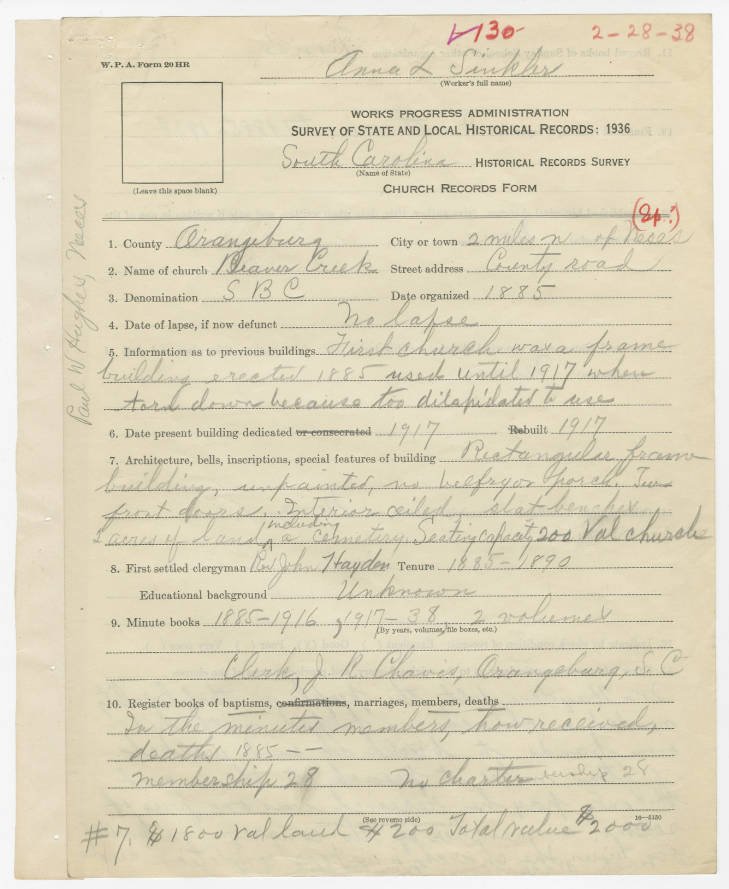 130 2-28-38
W. P. A. Form 20 HR
Anna L Sinkler
(Worker's full name)
WORKS PROGRESS ADMINISTRATION
SURVEY OF STATE AND LOCAL HISTORICAL RECORDS: 1936
South Carolina HISTORICAL RECORDS SURVEY
(Leave this space blank)
(Name of State)
CHURCH RECORDS FORM
(Sp?)
1. County Orangeburg City or town 2 miles n of Neces
2. Name of church Beaver Creek Street address County road
3. Denomination S B C Date organized 1885
4. Date of lapse, if now defunct No lapse
5. Information as to previous buildings First church was a frame
building erected 1885 used until 1917 when
torn down because too dilapidated to use
6. Date present building dedicated or consecrated 1917 Rebuilt 1917
7. Architecture, bells, inscriptions, special features of building Rectangular frame
building, unpainted, no belfry or porch. Two
front doors. Interior ceiled, slat benches.
2 acres of land, including a cemetery. Seating capacity 200 Val church
8. First settled clergyman Rev John Hayden Tenure 1885-1890
Educational background Unknown
9. Minute books 1885-1916, 1917-38, 2 volumes
(By years, volumes, file boxes, etc.)
Clerk, J R Chavis, Orangeburg, S. C
10. Register books of baptisms, confirmations, marriages, members, deaths
In the minutes members, how received,
deaths 1885 --
membership 28 No charter 28
(See reverse side)
#7. $1800 Val land $200 Total value $2000
Paul W Hughes, Neces